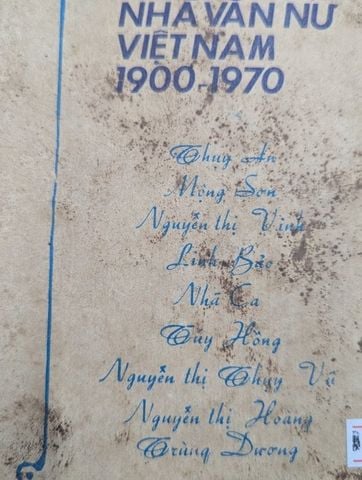 NHÀ VĂN NỮ
VIỆT NAM
1900-1970
Thụy An
Mộng Sơn
Nguyễn thị Vinh
Linh Bảo
Nhã Ca
Túy Hồng
Nguyễn thị Thụy Vũ
Nguyễn thị Hoàng
Trùng Dương